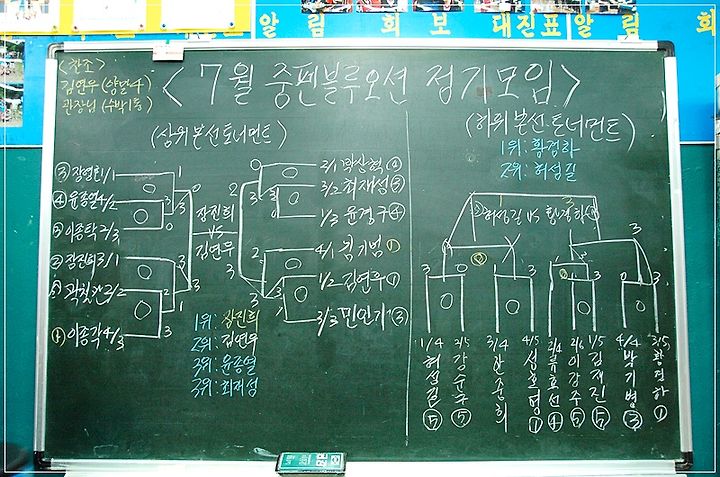 알 림 회 보 대진표 알 림 회
<찬조>
김연우
관장님 (수박1통)
<7월 중펜블루오션 정기모임>
(상위본선토너먼트)
③ 장영희 1/1
④ 윤종열 4/2
⑤ 이종탁 2/3
② 장진희 3/1
2/2
① 이종각 4/3
장진희
VS
김연우
2/1 박상혁 ④
3/2 최재성 ③
1/3 윤경구 ④
4/1 김기범 ①
1/2 김연우 ①
3/3 민인기 ③
1위: 장진희
2위: 김연우
3위: 윤종열
3위: 최재성
(하위본선토너먼트)
1위: 황경하
2위: 허성길
허성길 VS 황경하
1/4 허성길 ⑤
3/5 강순구 ⑤
3/4
4/5
2/4 류호선 ④
2/6 이강주 ⑤
1/5 김재진 ⑤
4/4 박기병 ③
3/5 황경하 ①